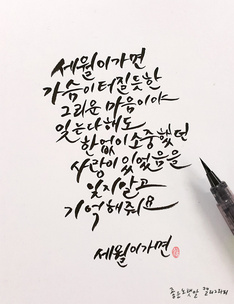 세월이가면
가슴이 터질듯한
그리운 마음이야
잊는다해도
한없이 소중했던
사랑이 있었음을
잊지말고
기억해줘요
세월이가면